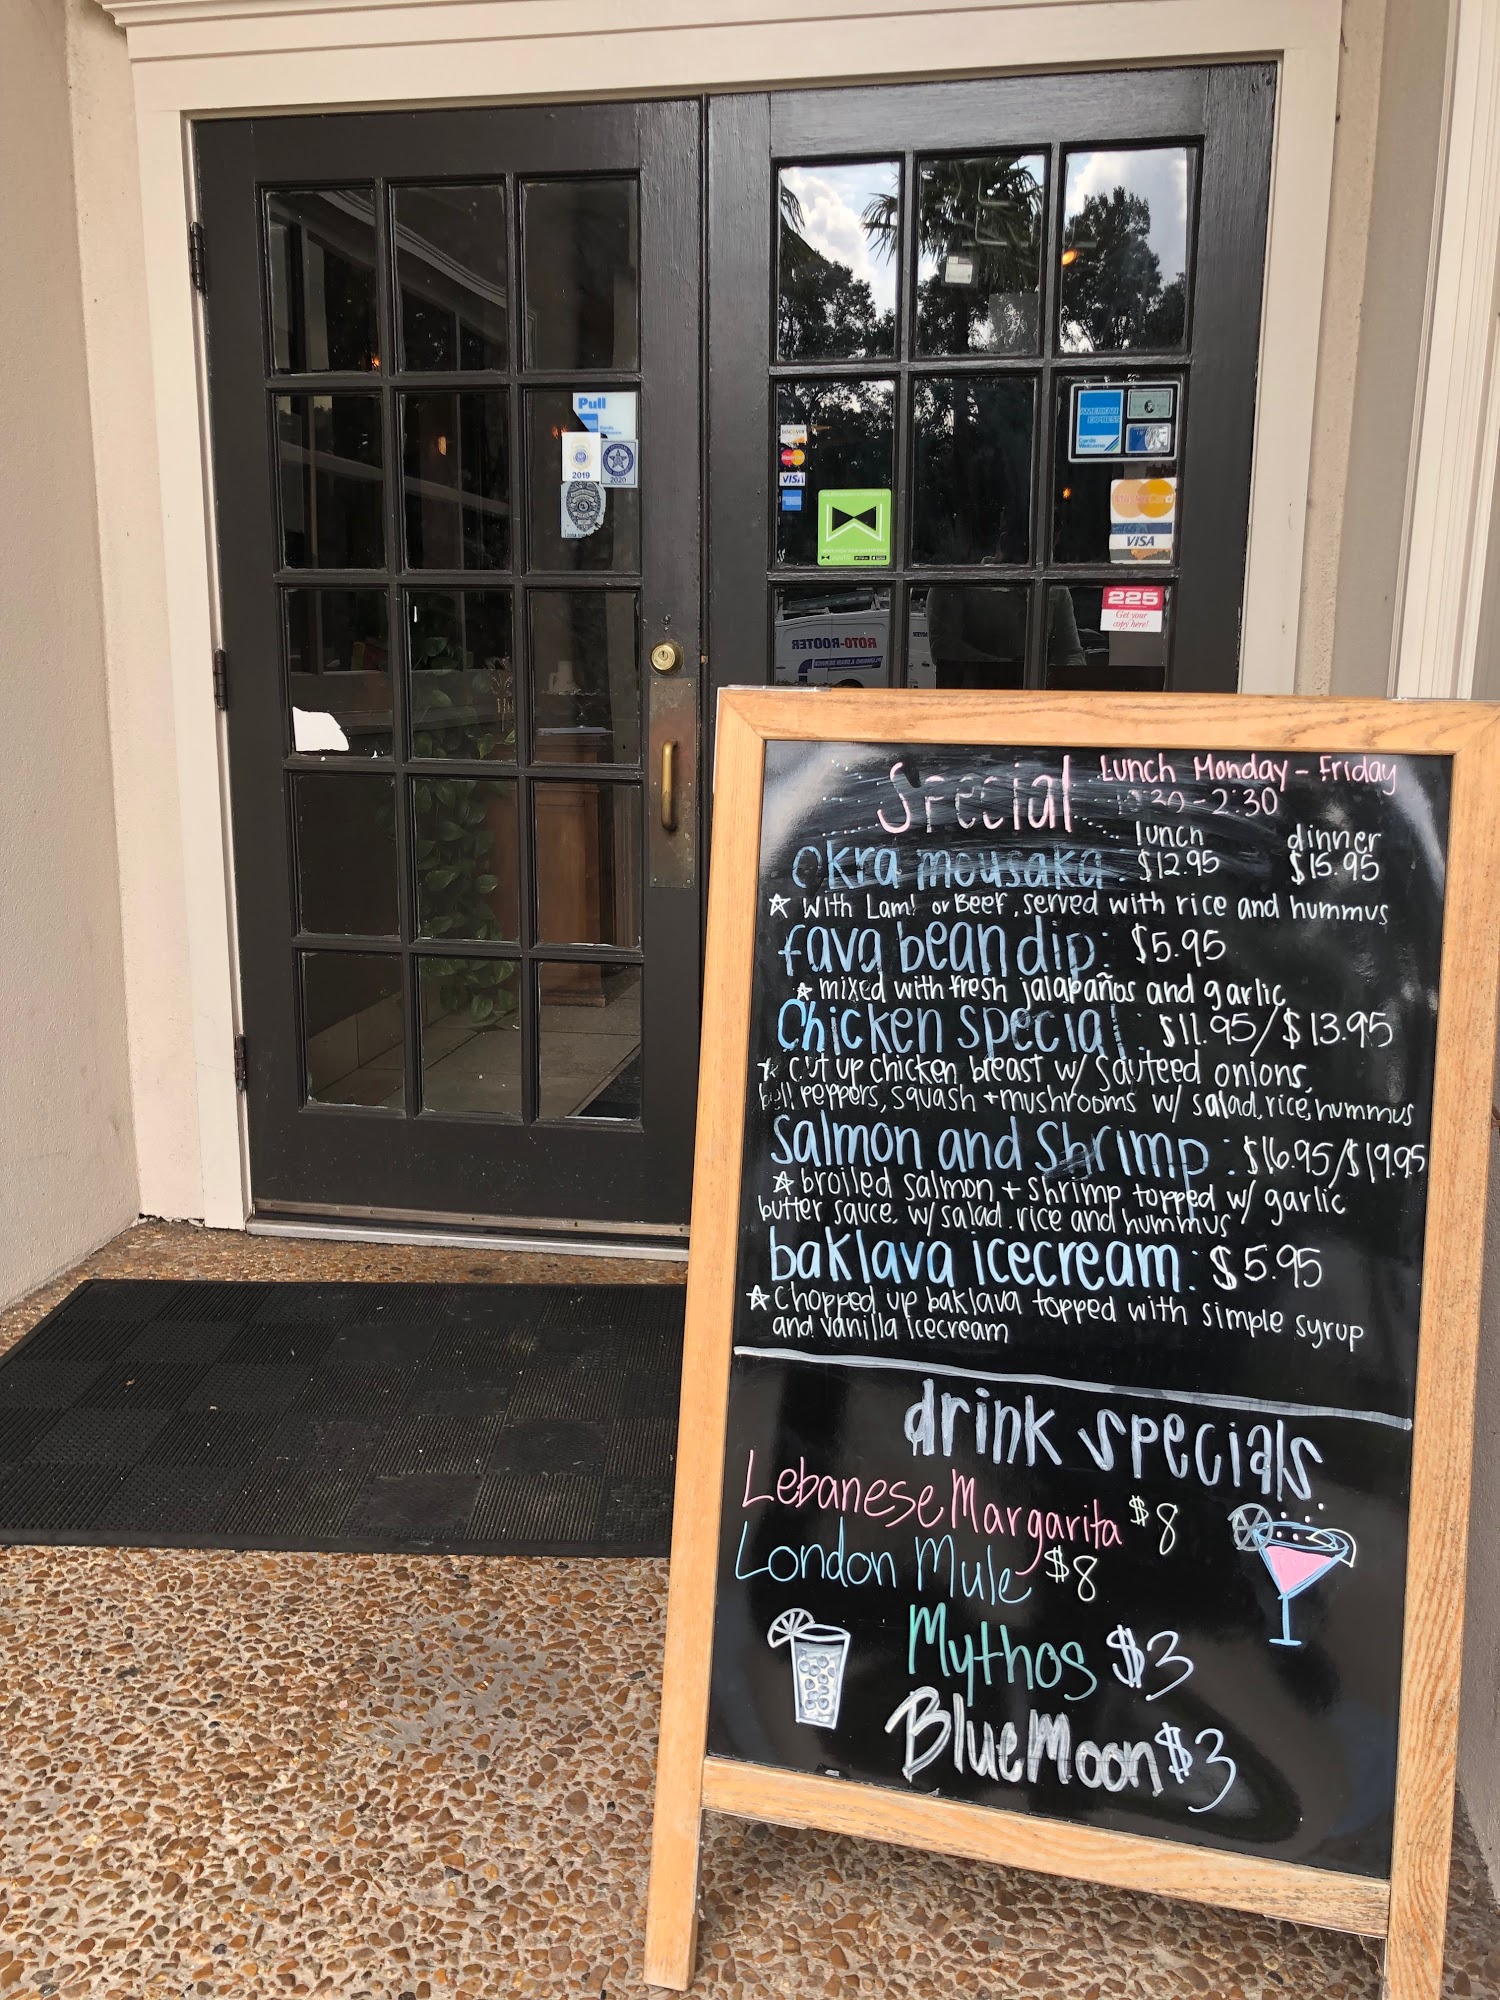 Pull
Cards
Welcome
2019
2020
DISCOVER
MasterCard
VISA
AMERICAN
EXPRESS
Cards
Welcome
MasterCard
VISA
225
Get your
copy here!
ROTO-ROOTER
PLUMBING & DRAIN SERVICE
Special
Lunch Monday - Friday
:30 - 2:30
lunch dinner
okra mousaka: $12.95 $15.95
☆ With Lamb or Beef, served with rice and hummus
fava bean dip: $5.95
☆ mixed with fresh jalapaños and garlic
Chicken Special: $11.95/$13.95
☆ cut up chicken breast w/ sauteed onions,
bell peppers, squash + mushrooms w/ salad, rice, hummus
Salmon and Shrimp: $16.95/$19.95
☆ broiled salmon + shrimp topped w/ garlic
butter sauce. w/ salad. rice and hummus
baklava icecream: $5.95
☆ Chopped up baklava topped with simple syrup
and vanilla icecream
drink specials
Lebanese Margarita $8
London Mule $8
Mythos $3
Blue Moon $3